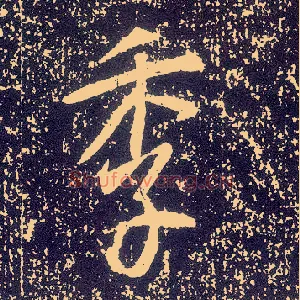 季
shufawang.cn